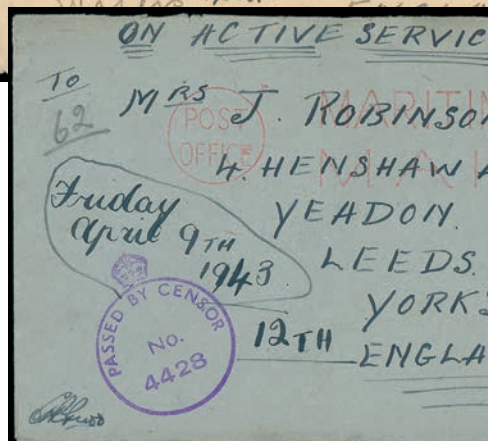 ON ACTIVE SERVIC
To
62
MRS J. ROBINSON
POST OFFICE
MARITIM
MAI
4. HENSHAW A
YEADON.
LEEDS.
YORKS
ENGLA
Friday
April 9TH
1943.
12TH
PASSED BY CENSOR
No.
4428